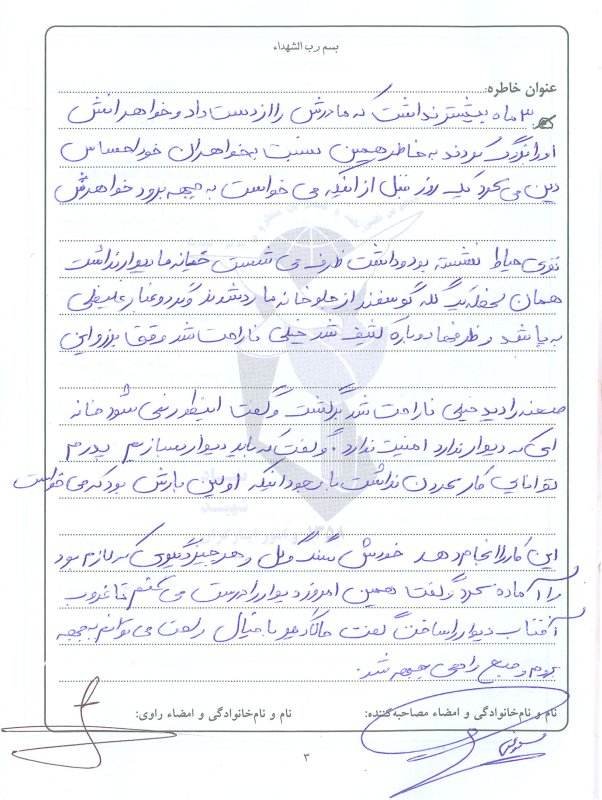 بسم رب الشهداء
عنوان خاطره:
۳ ماه بیشتر نداشت که مادرش را از دست داد و خواهرانش
او را بزرگ کردند به خاطر همین نسبت به خواهران خود احساس
دین می کرد یک روز قبل از آنکه می خواست به جبهه برود خواهرش
توی حیاط نشسته بود و داشت ظرف می شست خانه ما دیوار نداشت
همان لحظه یک گله گوسفند از جلو خانه ما رد شدند و گرد و غبار غلیظی
به پا شد و ظرفها دوباره کثیف شد خیلی ناراحت شد وقتی برادر این
صحنه را دید خیلی ناراحت شد برگشت و گفت اینطور نمی شود خانه
ای که دیوار ندارد امنیت ندارد. و گفت که باید دیوار بسازیم پدرم
توانایی کار کردن نداشت با وجود اینکه اولین بارش بود که می خواست
این کار را انجام دهد خودش سنگ و گل و هر چیز دیگری که لازم بود
را آماده کرد و گفت همین امروز دیوار را درست می کنم تا غروب
آفتاب دیوار را ساخت گفت حالا دیگر با خیال راحت می توانم به جبهه
بروم و صبح راهی جبهه شد.
نام و نام‌خانوادگی و امضاء مصاحبه‌کننده:
نام و نام‌خانوادگی و امضاء راوی:
۳